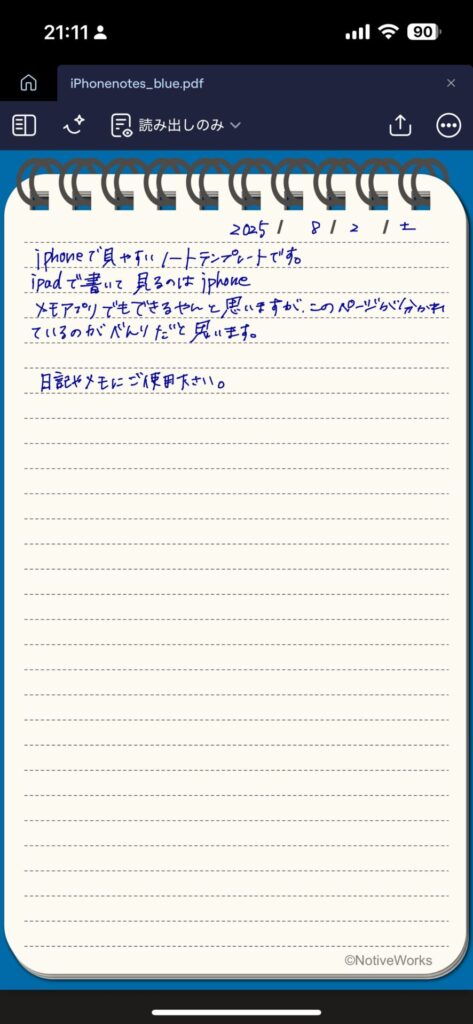 21:11
90
iPhonenotes_blue.pdf
読み出しのみ
2025 / 8 / 2 / 土
iphoneで見やすいノートテンプレートです。
ipadで書いて 見るのは iphone
メモアプリでもできるやんと思いますが、このページが分かれ
ているのがべんりだと思います。
日記やメモにご使用下さい。
©NotiveWorks